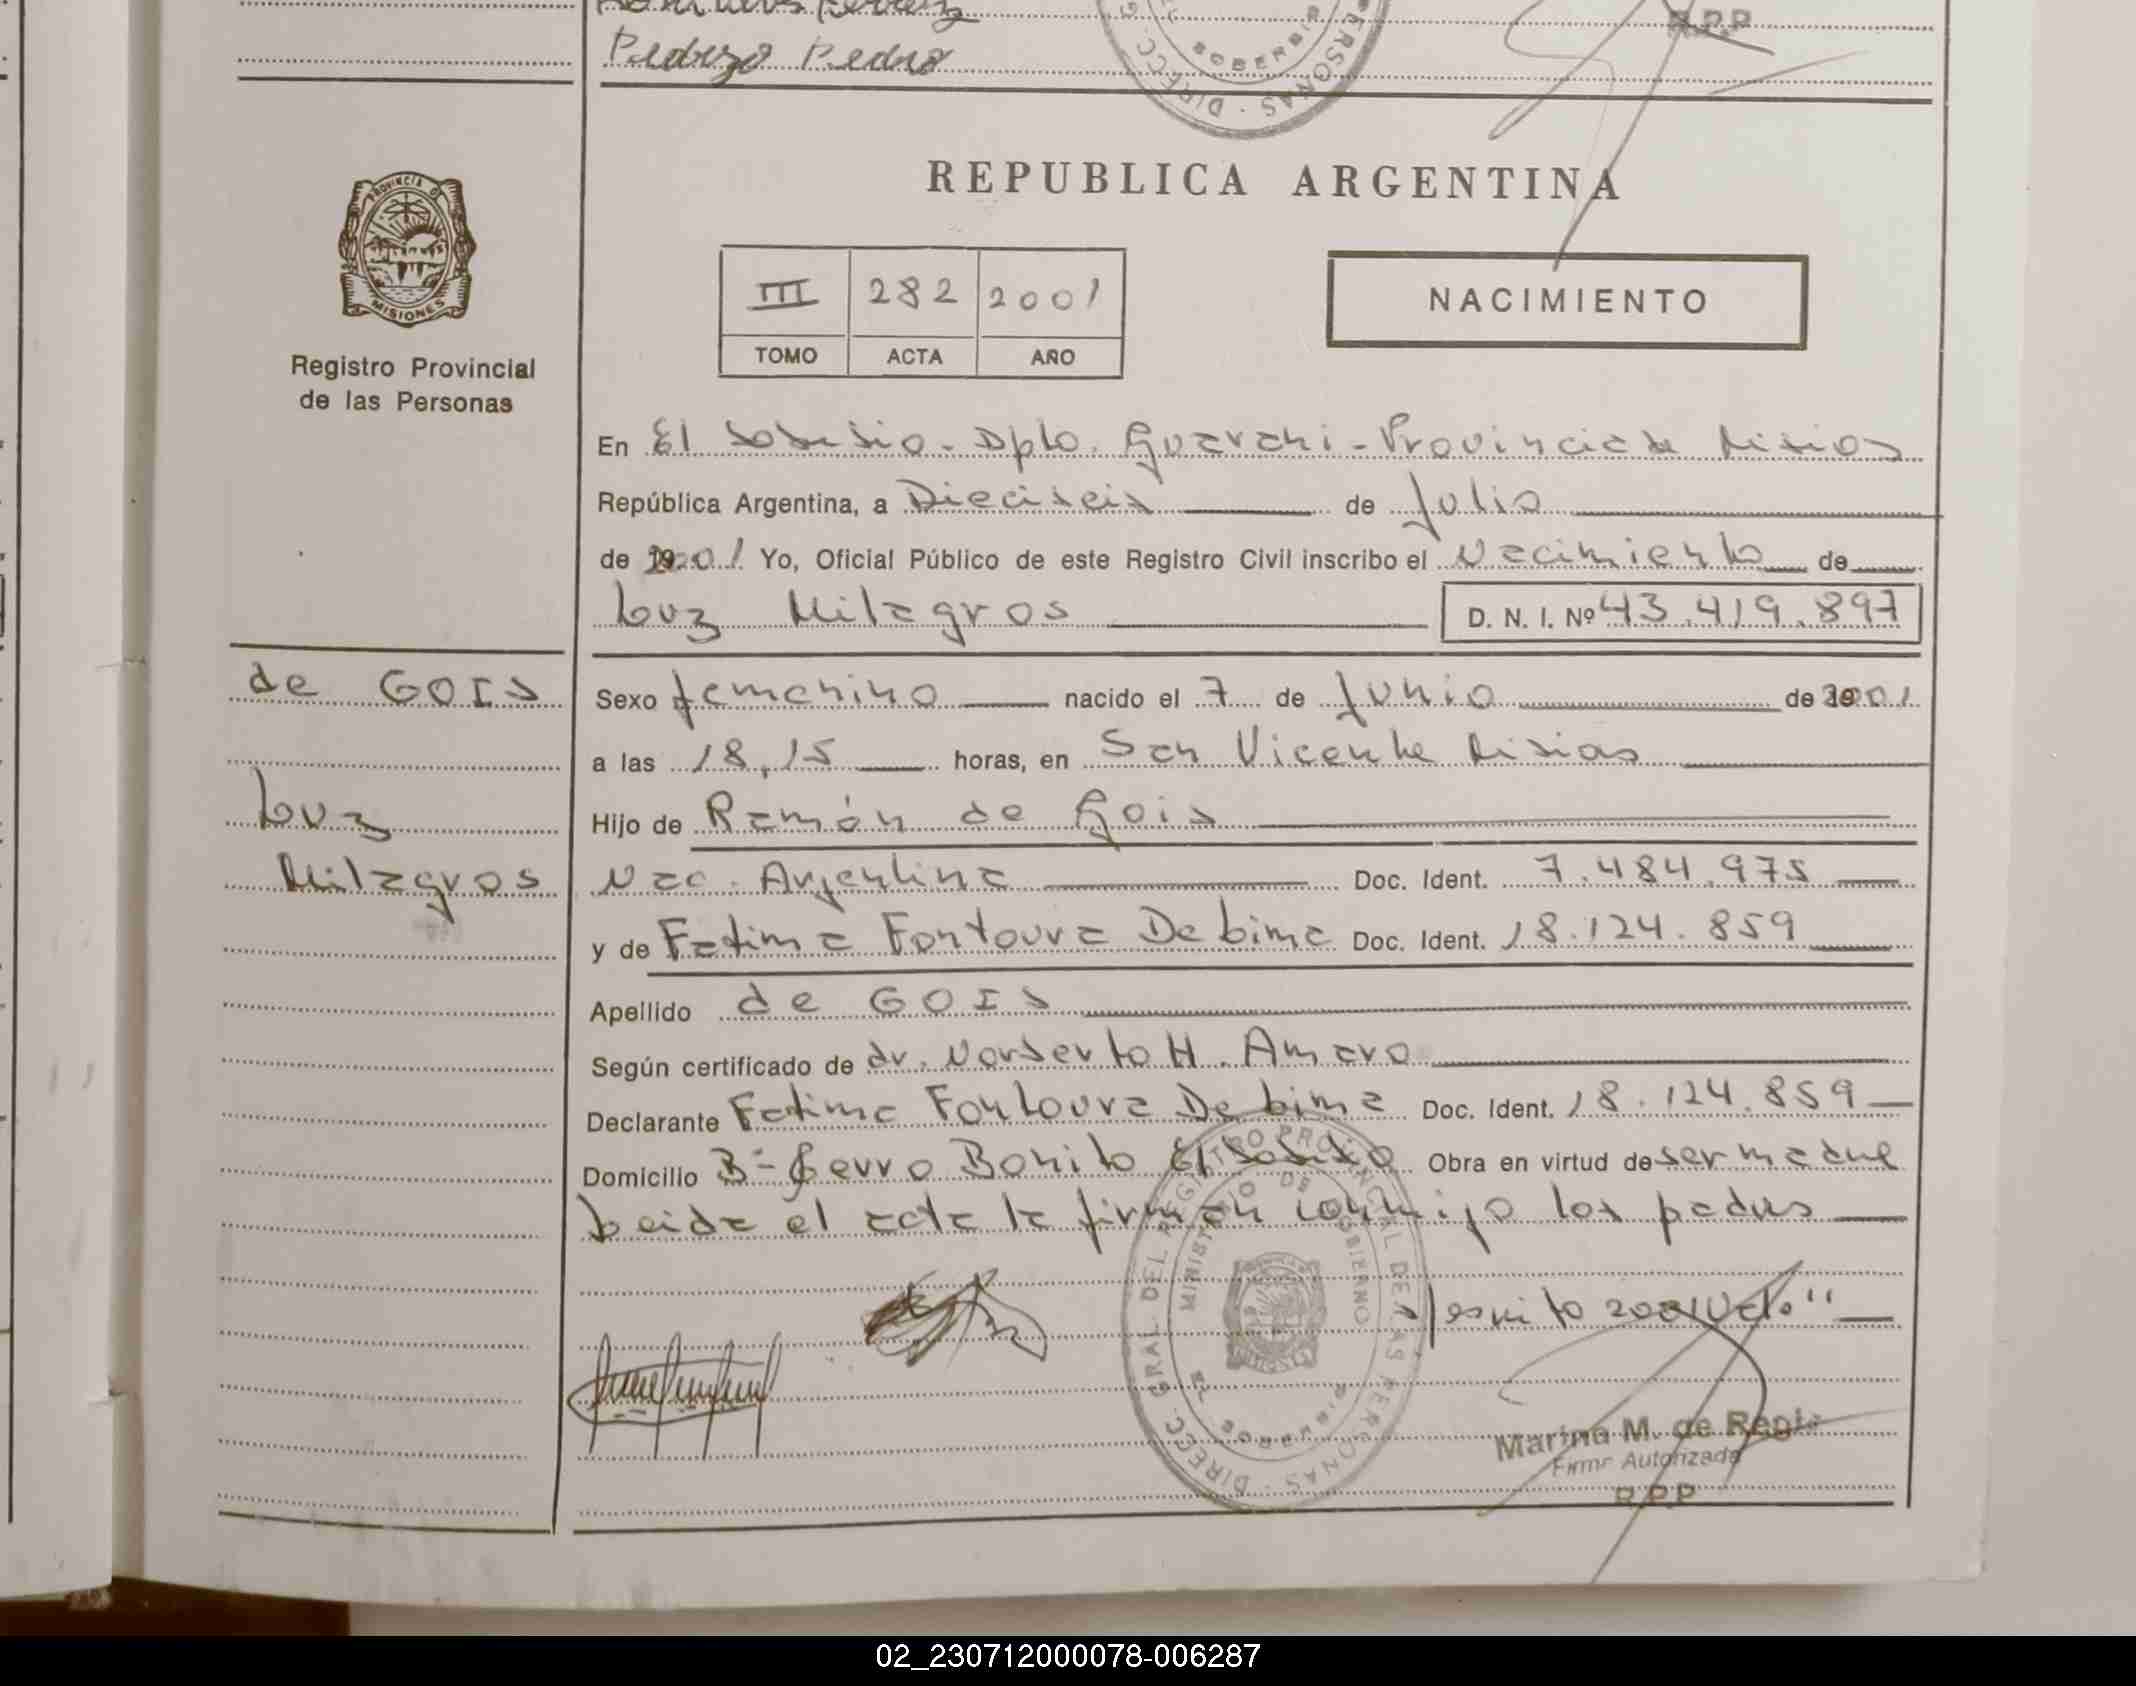 Pedrozo Pedro
R.P.P
DIRECC. PERSONAS
SOBERBIO
REPUBLICA ARGENTINA
PROVINCIA DE
MISIONES
Registro Provincial
de las Personas
III 282 2001
TOMO ACTA AÑO
NACIMIENTO
En El Soberbio - Dpto. Guarani - Provincia de Misios
República Argentina, a Dieciseis de Julio
de 2001 Yo, Oficial Público de este Registro Civil inscribo el Nacimiento de
Luz Milagros D. N. I. Nº 43.419.897
de GOIS
Luz
Milagros
Sexo femenino nacido el 7 de Junio de 2001
a las 18,15 horas, en San Vicente Misios
Hijo de Ramón de Gois
Nac. Argentina Doc. Ident. 7.484.975
y de Fatima Fontoura De bima Doc. Ident. 18.124.859
Apellido de GOIS
Según certificado de dr. Norberto H. Amaro
Declarante Fatima Fontoura De bima Doc. Ident. 18.124.859
Domicilio Bº Cerro Bonito El Soberbio Obra en virtud de ser madre
Leida el acta la firman conmigo los padres
s/escrito 2001 Vale"
DIRECC. GRAL. DEL REGISTRO PROVINCIAL DE LAS PERSONAS
MINISTERIO DE GOBIERNO
EL SOBERBIO
Marina M. de Regis
Firma Autorizada
R.P.P
02_230712000078-006287